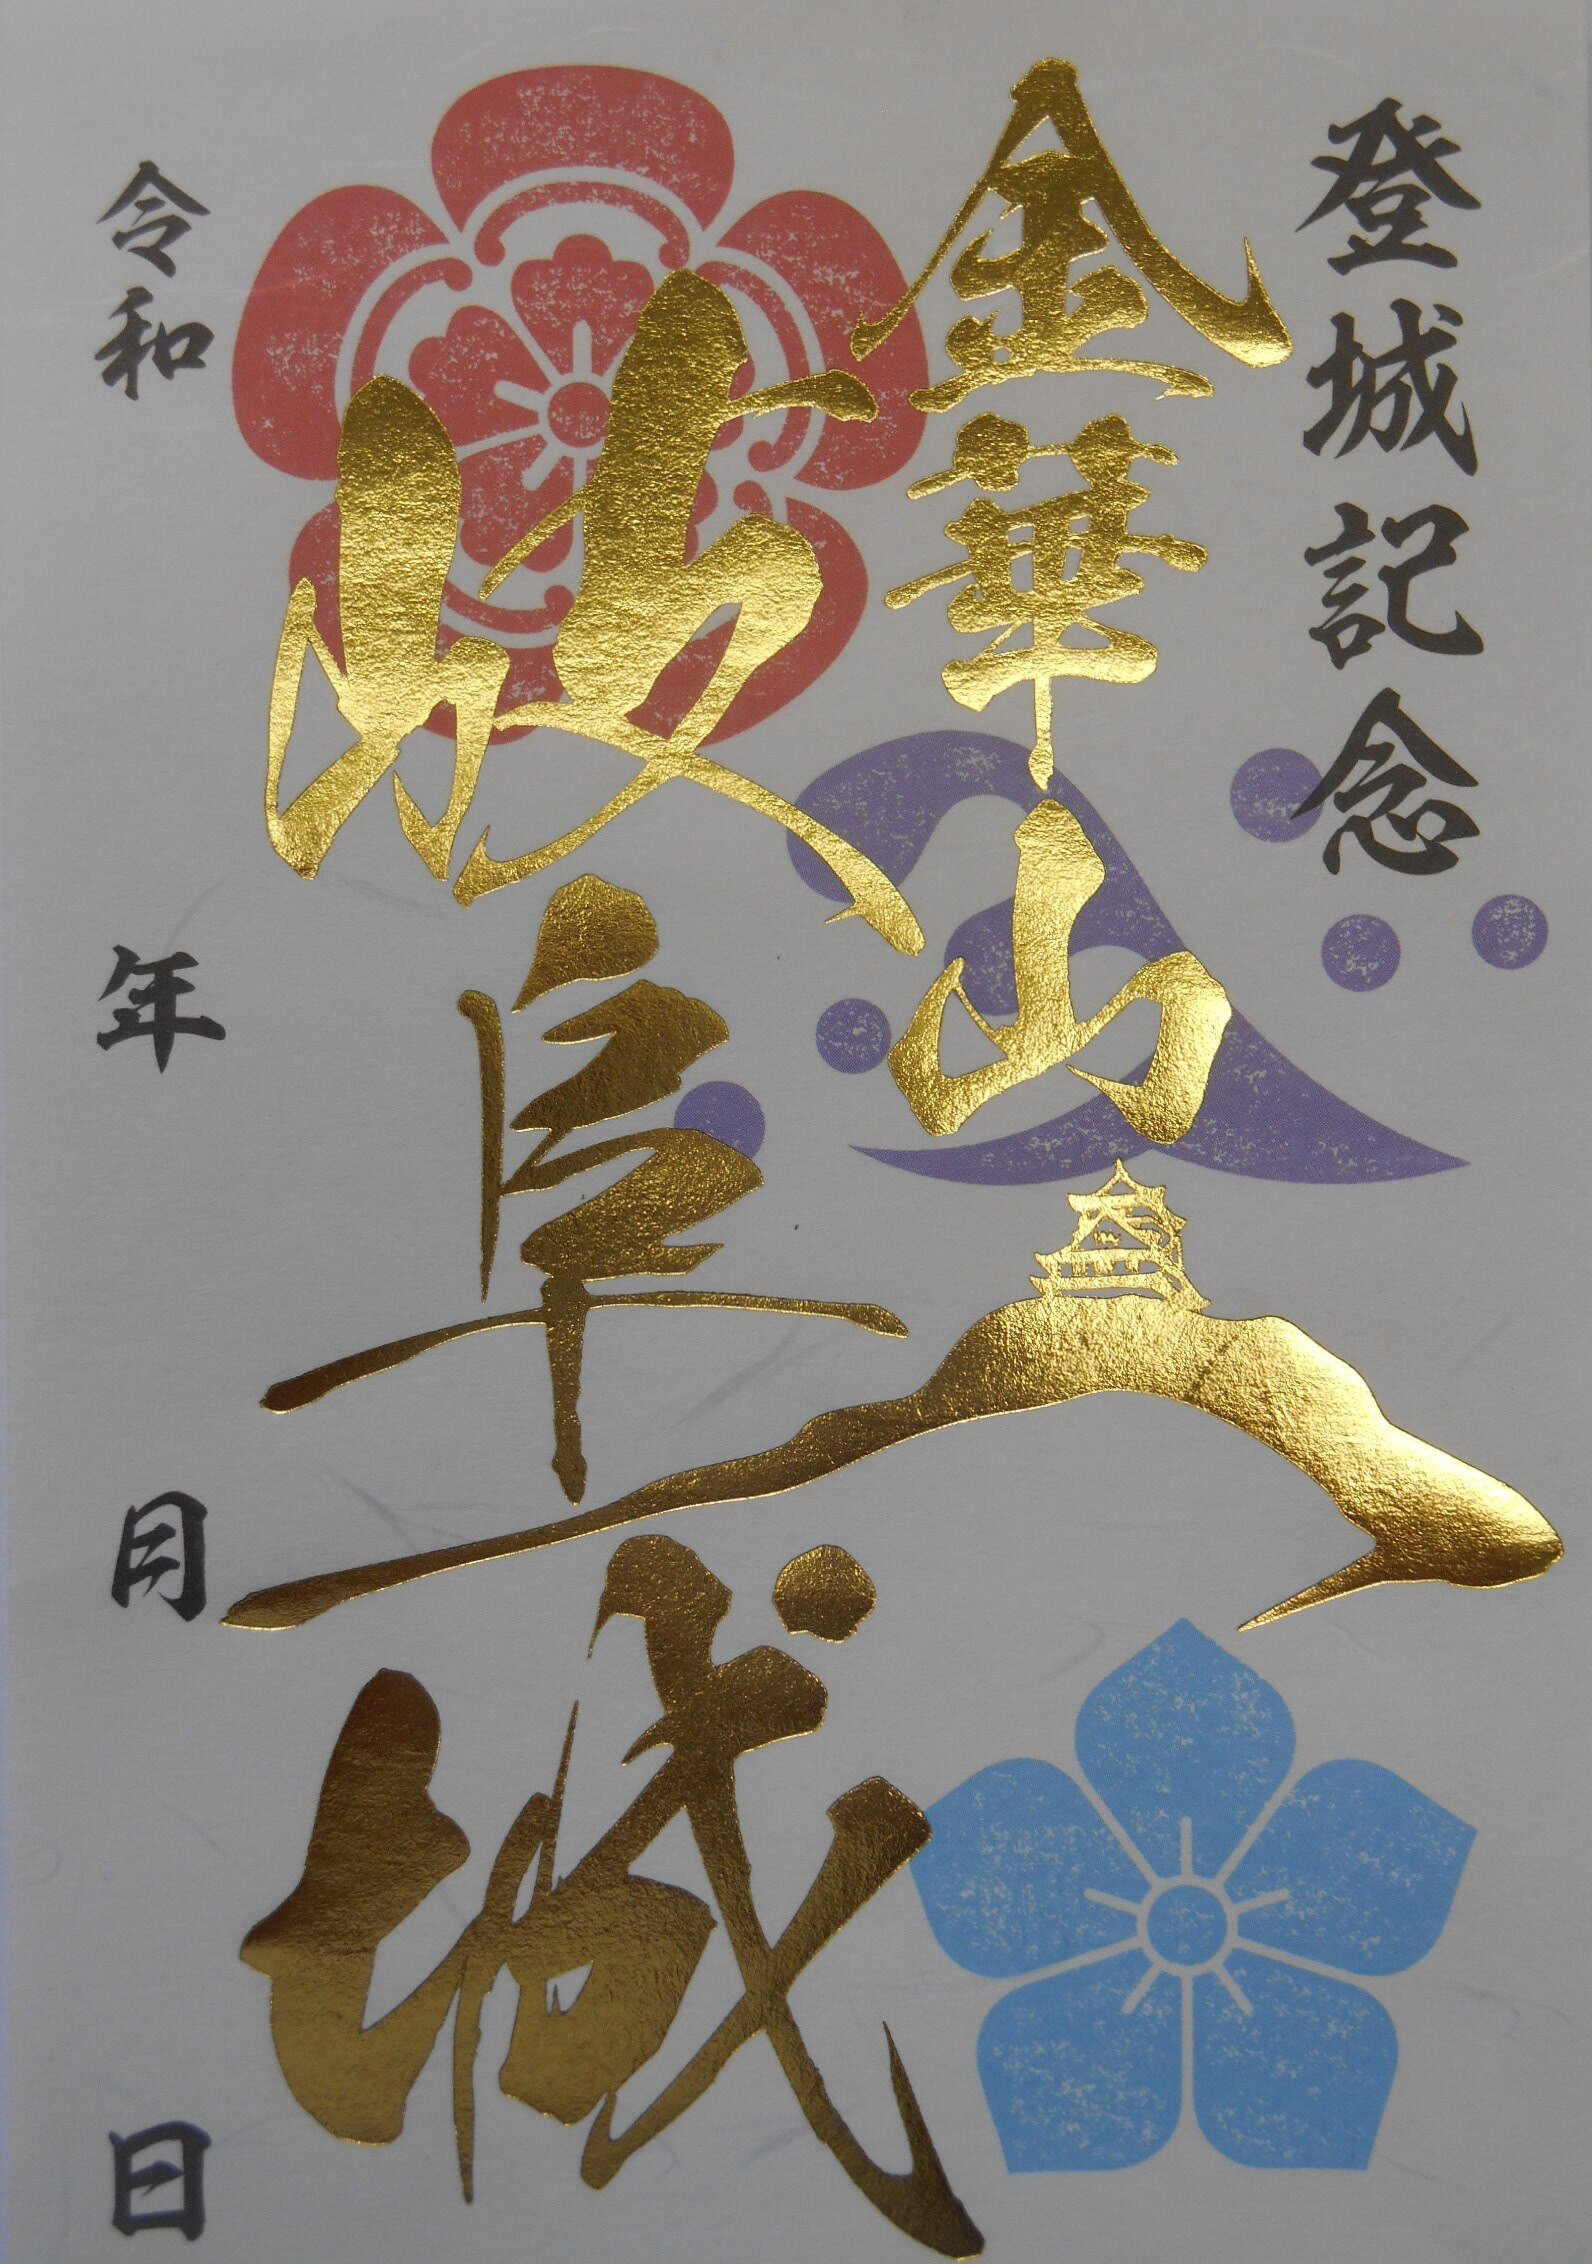 登城記念
金華山
岐阜城
令和 年 月 日